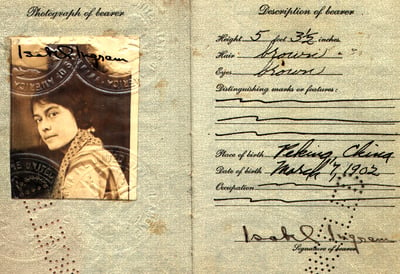 Photograph of bearer
Isabel Ingram
Description of bearer
Height 5 feet 3½ inches
Hair brown
Eyes brown
Distinguishing marks or features:
Place of birth Peking, China
Date of birth March 7, 1902
Occupation
Isabel Ingram
Signature of bearer